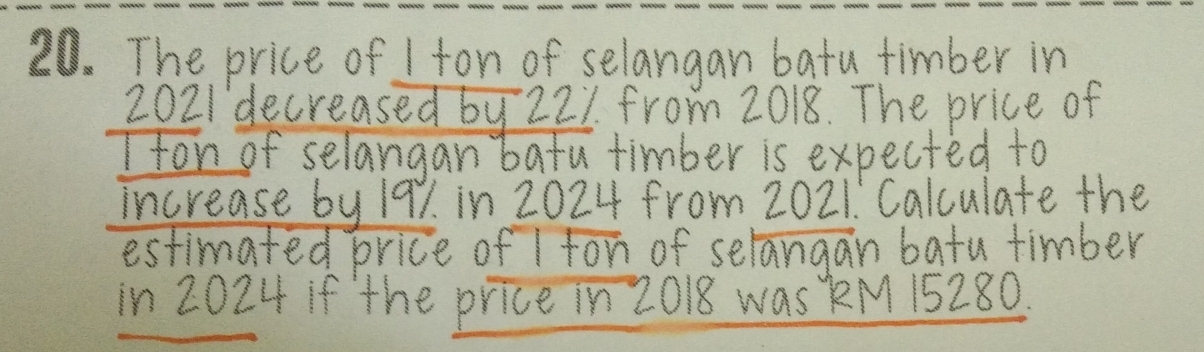 20. The price of 1 ton of selangan batu timber in
2021 decreased by 22% from 2018. The price of
1 ton of selangan batu timber is expected to
increase by 19% in 2024 from 2021. Calculate the
estimated price of 1 ton of selangan batu timber
in 2024 if the price in 2018 was RM 15280.